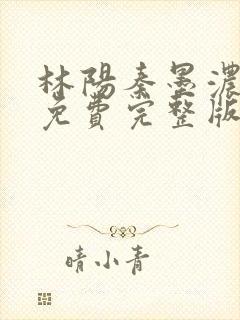 林陽秦墨濃
免費完整版
晴小青